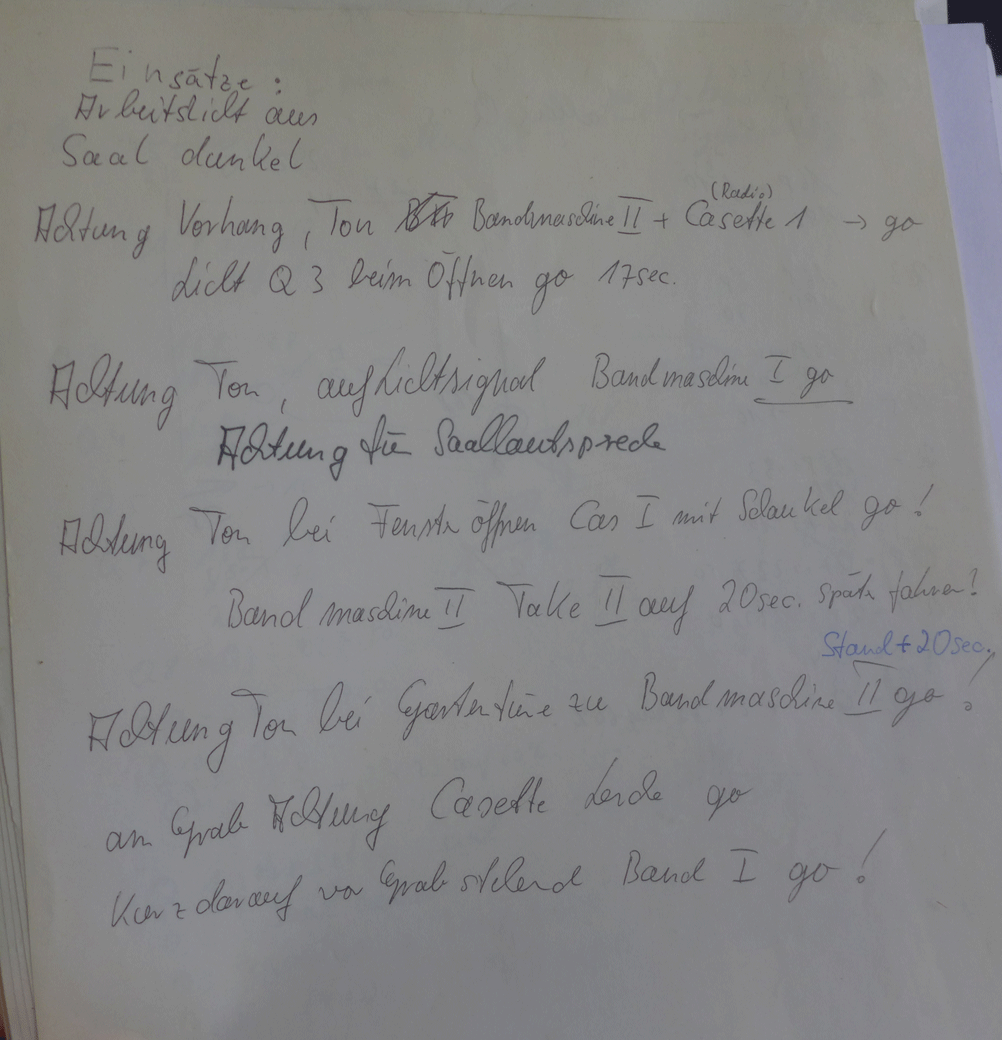 Einsätze:
Arbeitslicht aus
Saal dunkel
(Radio)
Achtung Vorhang, Ton Bandmaschine II + Casette 1 → go
Licht Q 3 beim Öffnen go 17sec.
Achtung Ton, auf Lichtsignal Bandmaschine I go
Achtung für Saallautsprecher
Achtung Ton bei Fenster öffnen Cas I mit Schaukel go!
Bandmaschine II Take II auf 20sec. später fahren!
Stand + 20sec.
Achtung Ton bei Gartentüre zu Bandmaschine II go!
am Grab Achtung Casette Lerche go
Kurz darauf vor Grab stehend Band I go!